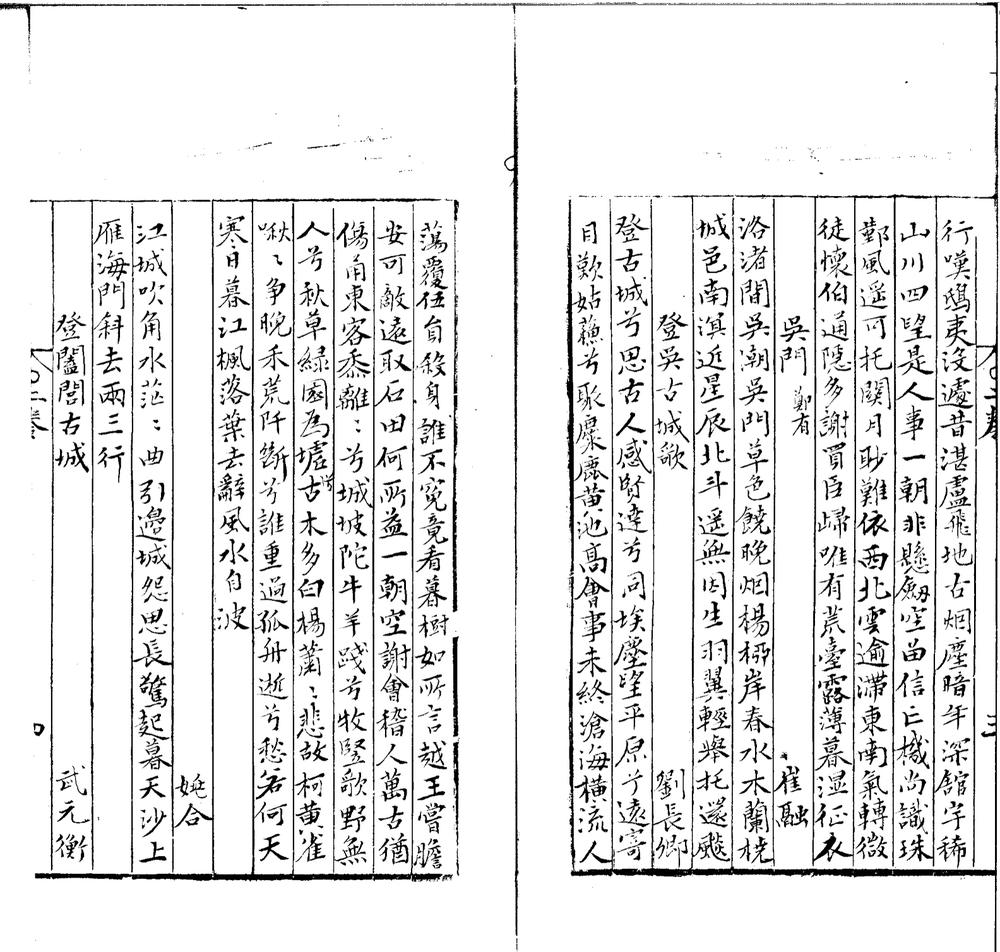 行嘆鴟夷沒遽昔湛盧飛地古烟塵暗年深館宇稀
山川四望是人事一朝非懸劒空留信亡機尚識珠
鄞風遥可托關月眇難依西北雲逾滯東南氣轉微
徒懷伯通隱多謝買臣歸唯有荒臺露薄暮湿征衣
吳門 鄭有 崔融
洛渚閶吳潮吳門草色饒晩烟楊柳岸春水木蘭橈
城邑南溟近星辰北斗遥無因生羽翼輕舉托還飈
登吳古城歌 劉長卿
登古城兮思古人感賢達兮同埃塵望平原兮遠寄
目歎姑蘓兮聚麋鹿黄池髙會事未終滄海橫流人
蕩覆伍員殺身誰不寃竟看暮樹如所言越王嘗膽
安可敵遠取石田何所益一朝空謝會稽人萬古猶
傷甬東客黍離〻兮城坡陀牛羊踐兮牧竪歌野無
人兮秋草緑園為墟古木多白楊蕭〻悲故柯黄雀
啾〻争晩禾荒阡斷兮誰重過孤舟逝兮愁若何天
寒日暮江楓落葉去辭風水自波
姚合
江城吹角水茫〻曲引邉城怨思長驚起暮天沙上
雁海門斜去兩三行
登闔閭古城 武元衡